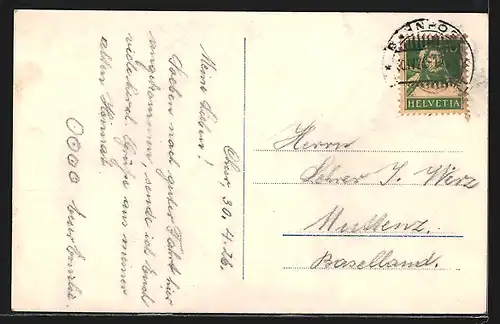 Chur, 30. 4. 26.
Meine Lieben!
Soeben nach guter Fahrt hier
angekommen, sende ich Euch
vielmal Grüsse aus meiner
alten Heimat.
0000 Euer
HELVETIA
Herrn
Lehrer J. Werz
Muttenz.
Baselland.